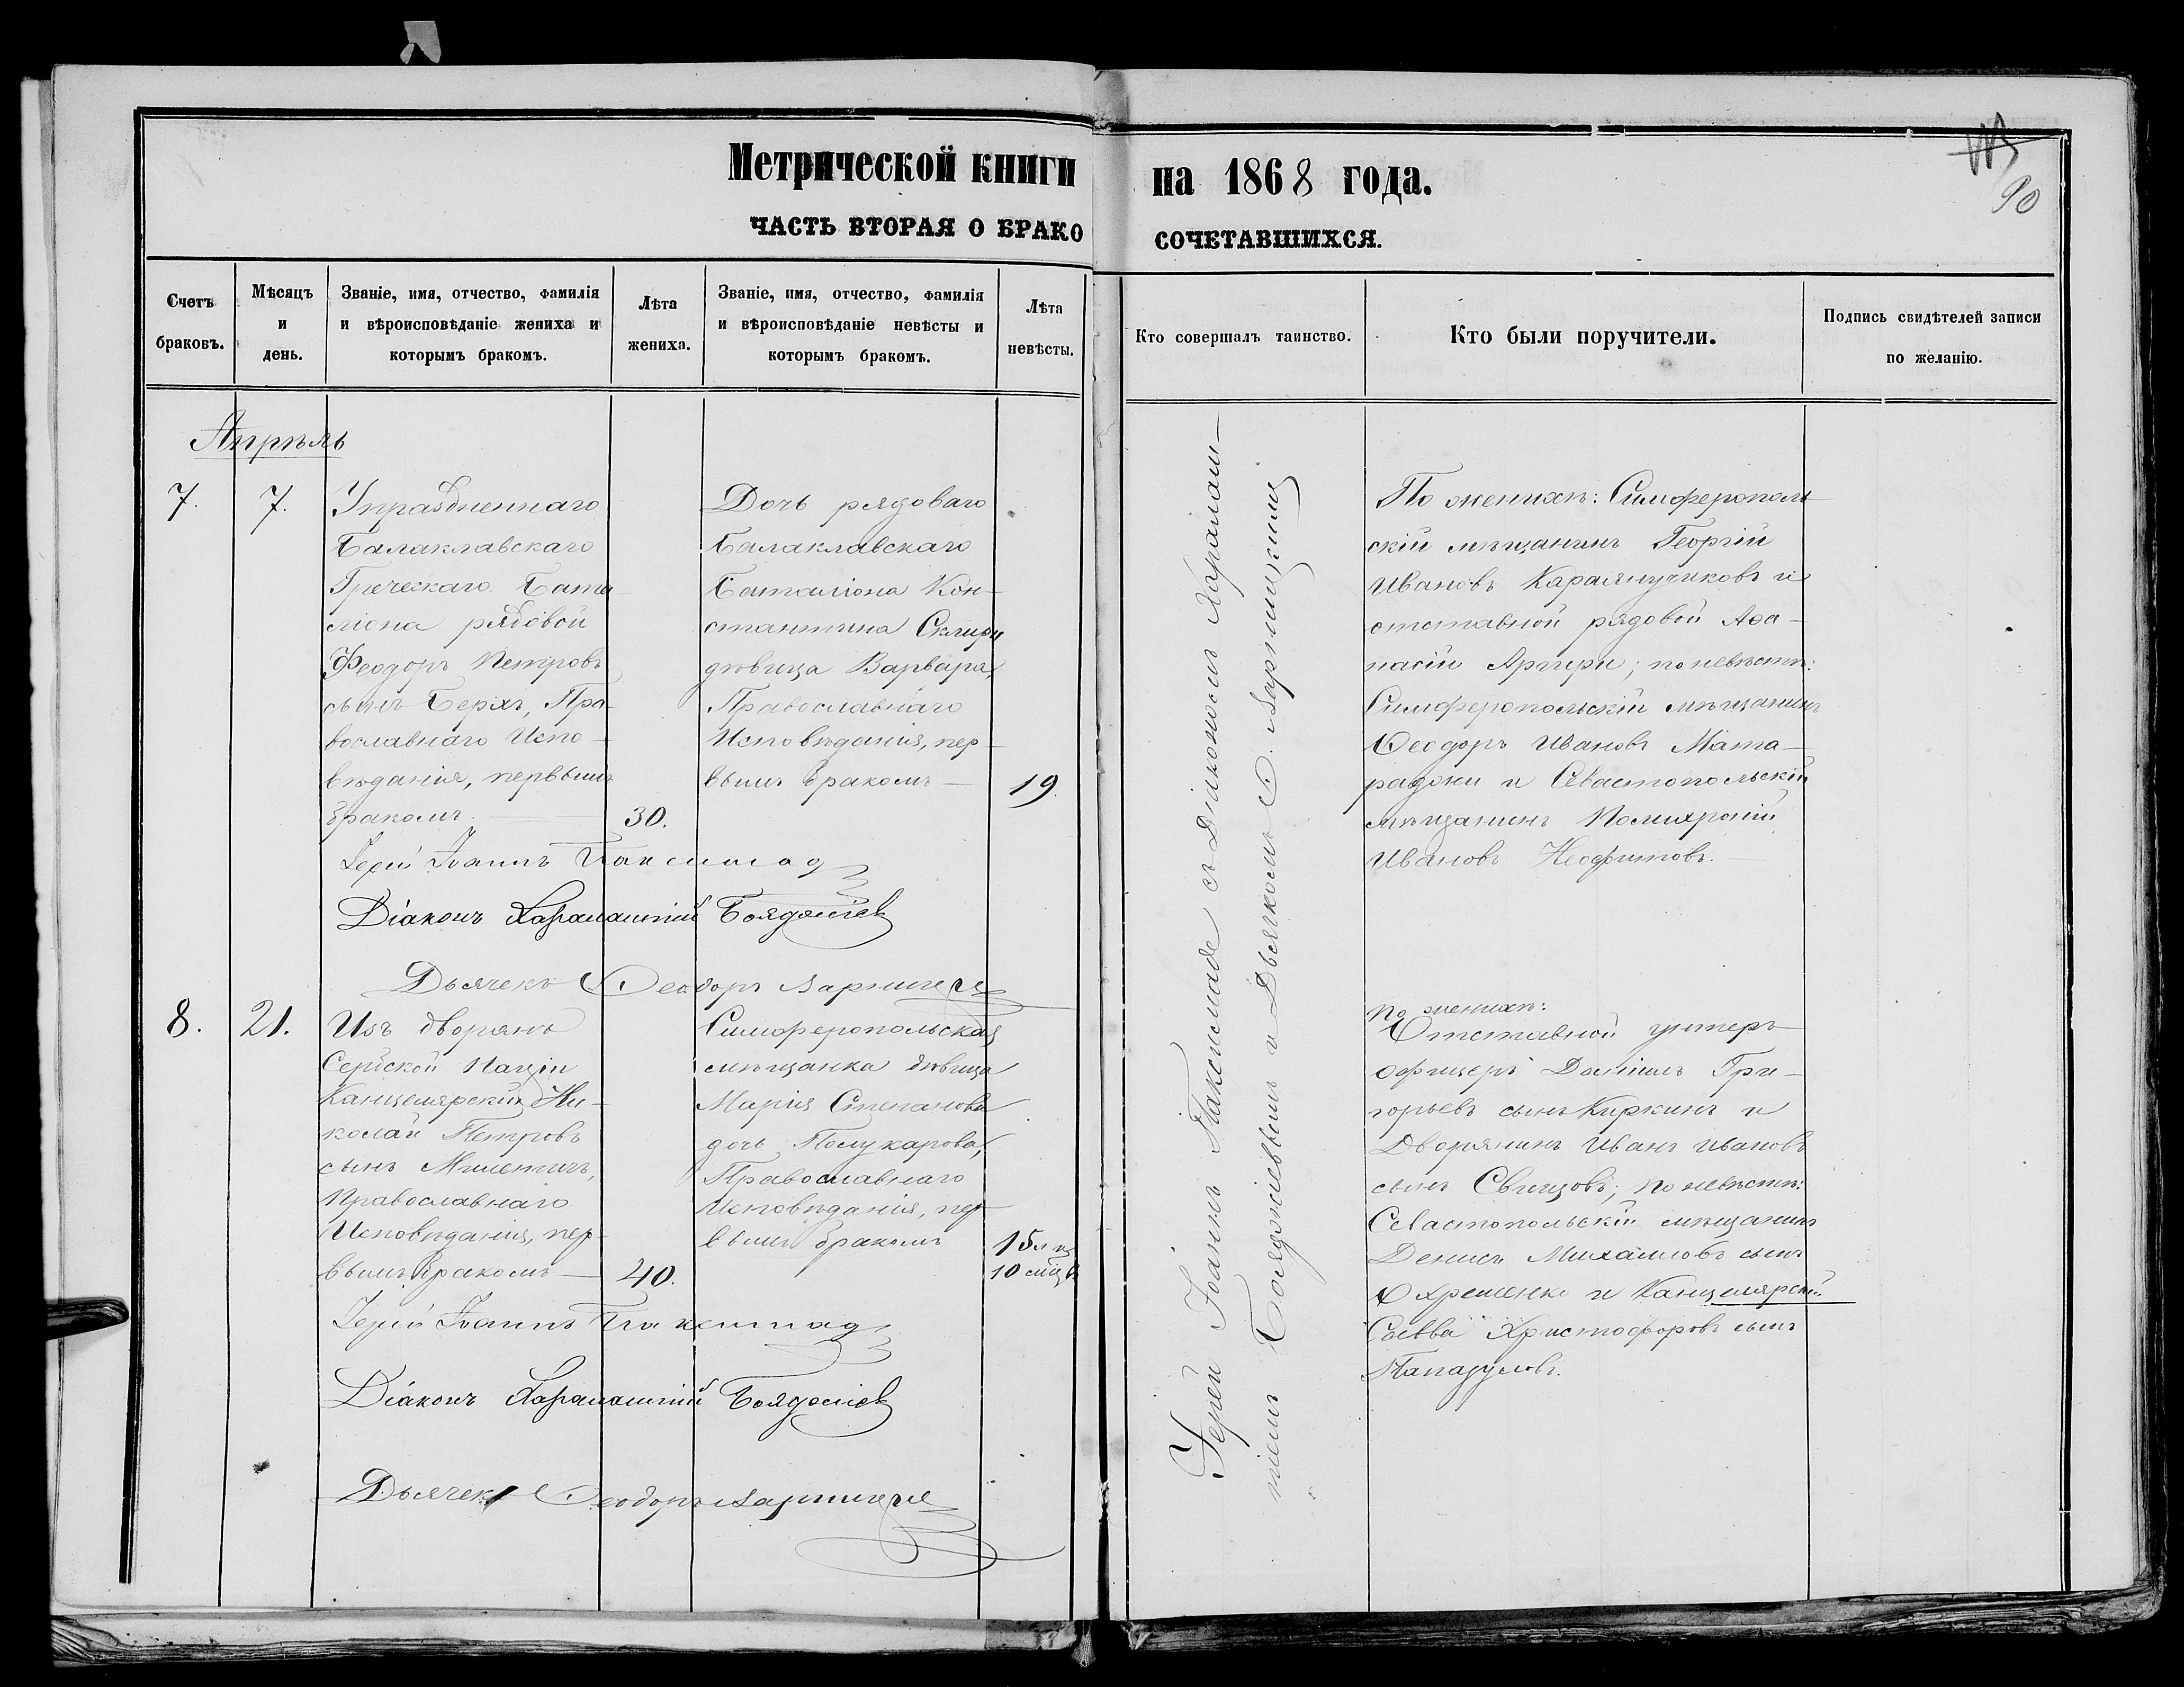 Метрической книги на 1868 года.
ЧАСТЬ ВТОРАЯ О БРАКОСОЧЕТАВШИХСЯ.
90
Счетъ браковъ.
Мѣсяцъ и день.
Званіе, имя, отчество, фамилія и вѣроисповѣданіе жениха и которымъ бракомъ.
Лѣта жениха.
Званіе, имя, отчество, фамилія и вѣроисповѣданіе невѣсты и которымъ бракомъ.
Лѣта невѣсты.
Кто совершалъ таинство.
Кто были поручители.
Подпись свидѣтелей записи по желанію.
Апрѣль
7.
7.
Упраздненнаго
Балаклавскаго
Греческаго Бата-
ліона рядовой
Феодоръ Петровъ
сынъ Берхъ, Пра-
вославнаго Испо-
вѣданія, первымъ
бракомъ.
30.
Дочь рядоваго
Балаклавскаго
Баталіона Кон-
стантина
дѣвица Варвара,
Православнаго
Исповѣданія, пер-
вымъ бракомъ
19.
Іерей Іоаннъ Паксимад
Діаконъ Харалампій Бояджіев
Дьячекъ Ѳеодоръ
По женихѣ: Симферополь-
скій мѣщанинъ Георгій
Ивановъ и
отставной рядовой Аѳа-
насій Аргири; по невѣстѣ:
Симферопольскій мѣщанинъ
Ѳеодоръ Ивановъ Мата-
раджи и Севастопольскій
мѣщанинъ Полихроній
Ивановъ Неофитовъ.
8.
21.
Изъ дворянъ
Сербской Націи
Канцелярскій Ни-
колай Петровъ
сынъ Милетичъ,
Православнаго
Исповѣданія, пер-
вымъ бракомъ
40.
Симферопольская
мѣщанка дѣвица
Марія Степанова
дочь Полукарова,
Православнаго
Исповѣданія, пер-
вымъ бракомъ
15
10
Іерей Іоаннъ Паксимад
Діаконъ Харалампій Бояджіев
Дьячекъ Ѳеодоръ
По женихѣ:
Отставной унтеръ-
офицеръ Даніилъ Гри-
горьевъ сынъ Киркинъ и
Дворянинъ Иванъ Ивановъ
сынъ Свинцовъ; по невѣстѣ:
Севастопольскій мѣщанинъ
Денисъ Михаиловъ сынъ
Охременко и Канцелярскій
Савва Христофоровъ сынъ
Пападуловъ.
Іерей Іоаннъ Паксимаде съ Діакономъ Харалам-
піемъ Бояджіевымъ и Дьячкомъ Ѳ.